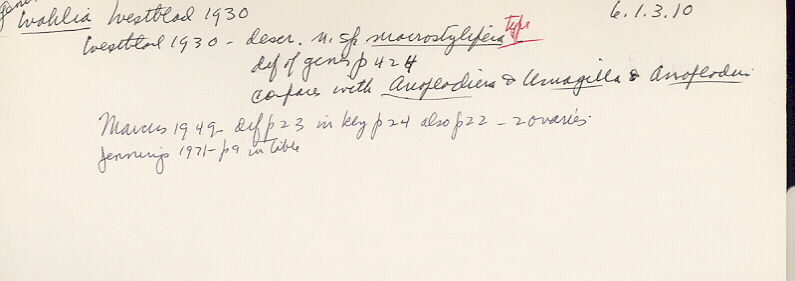 genus
Wahlia Westblad 1930 6.1.3.10
Westblad 1930 - descr. n. sp macrostylifera type
def of genus p 424
compare with Anoplodiera & Umagilla & Anoplodium
Marcus 1949 - def p 23 in key p 24 also p 22 - 2 ovaries.
Jennings 1971 - p 9 in table